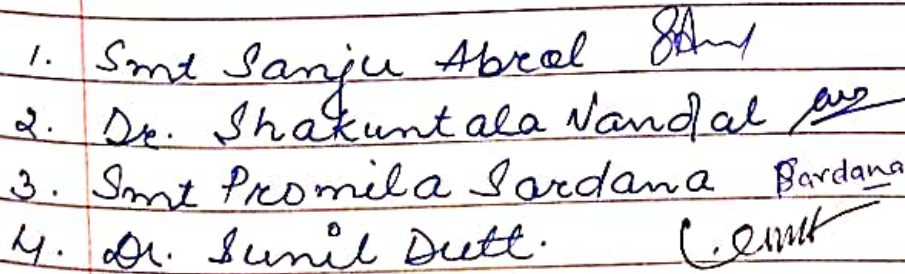 1. Smt Sanju Abrol
2. Dr. Shakuntala Nandal
3. Smt Promila Sardana Pardana
4. Dr. Sunil Dutt.